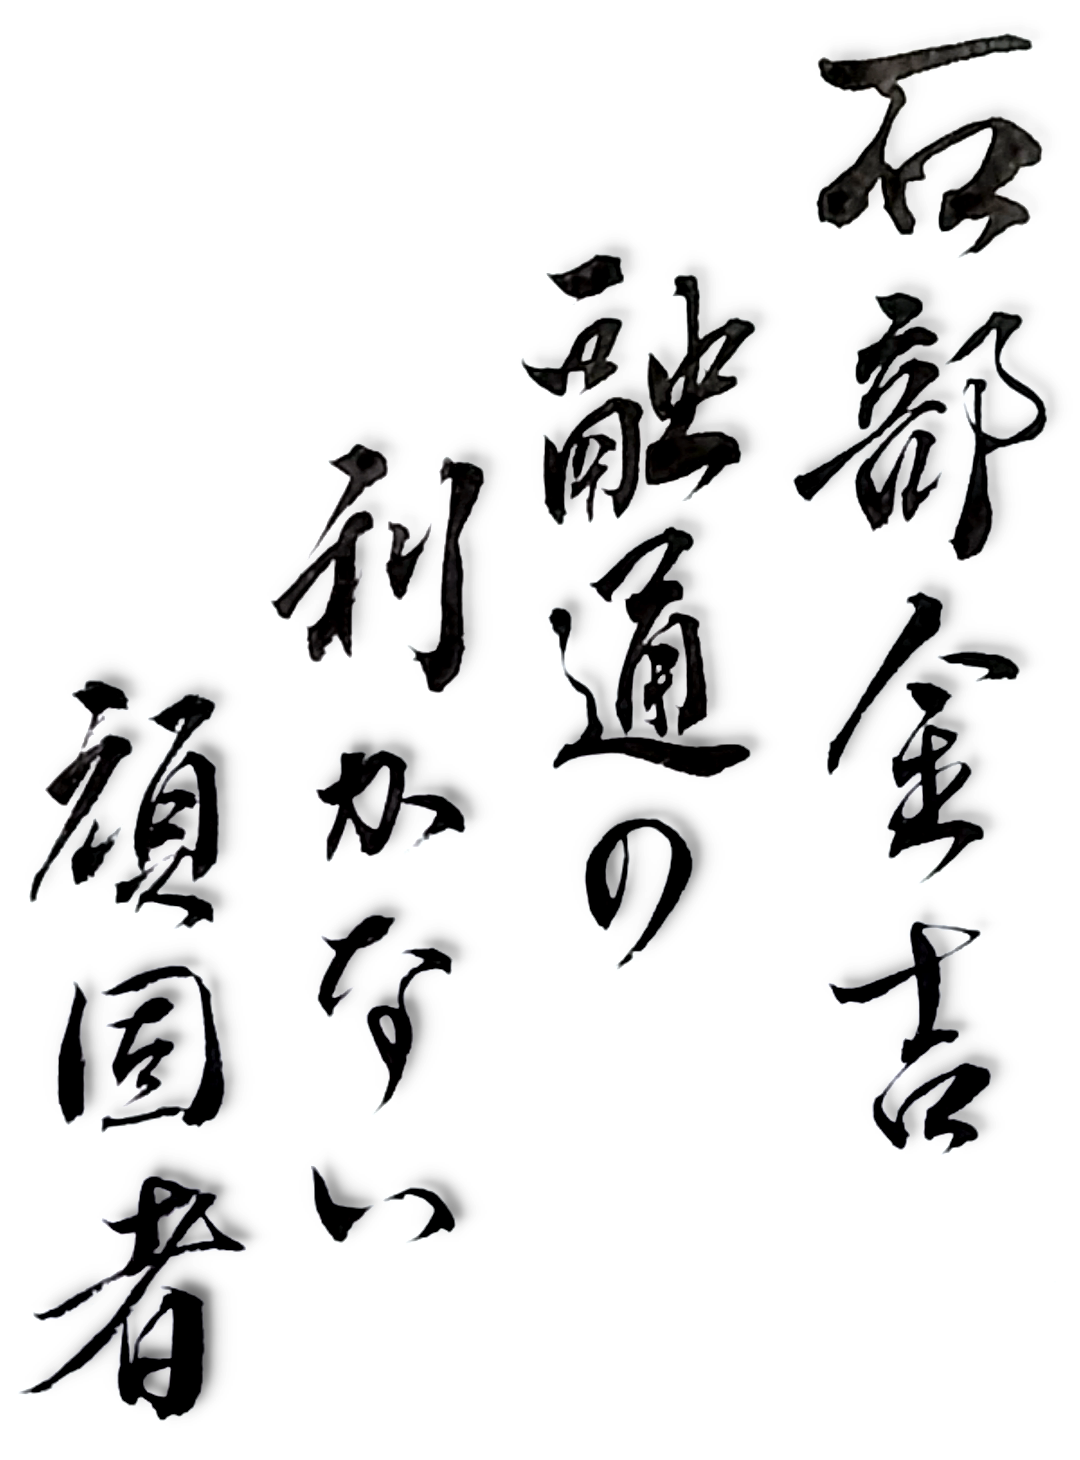 石部金吉
融通の
利かない
頑固者